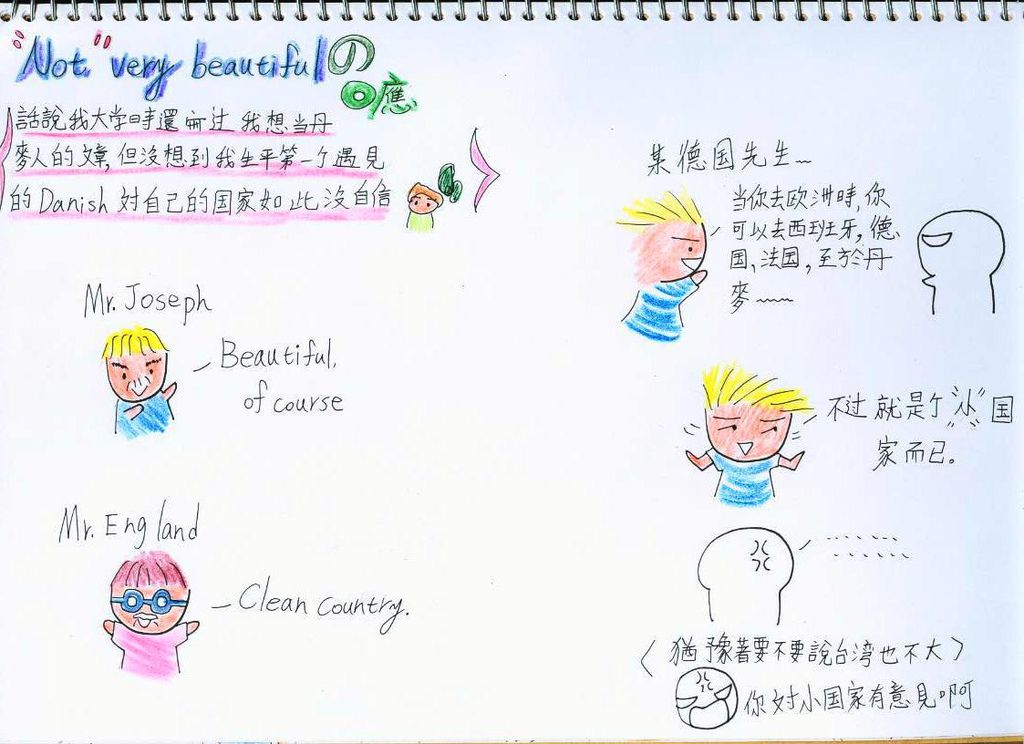 "Not" very beautifulの
回應
話說我大学時還寫过我想当丹
麥人的文章,但沒想到我生平第一个遇見
的Danish对自己的国家如此沒自信
Mr. Joseph
Beautiful,
of course
Mr. England
Clean country.
某德国先生~
当你去欧洲時,你
可以去西班牙,德
国、法国,至於丹
麥~~~
不过就是个"小"国
家而已。
<猶豫著要不要說台湾也不大>
你对小国家有意見啊